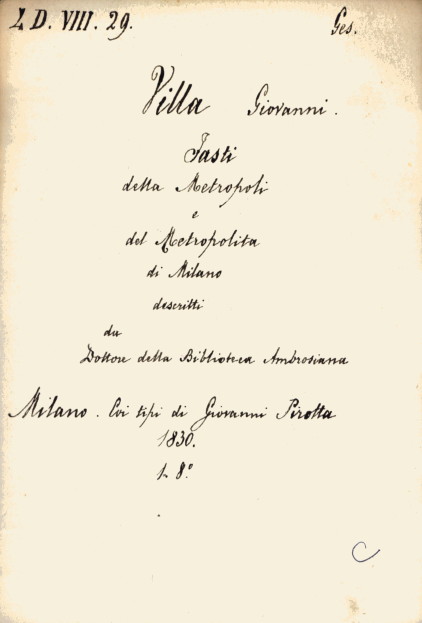 L D. VIII. 29. Ges.
Villa Giovanni.
Fasti
della Metropoli
e
del Metropolita
di Milano
descritti
da
Dottore della Biblioteca Ambrosiana
Milano. Coi tipi di Giovanni Pirotta
1830.
8.º
C